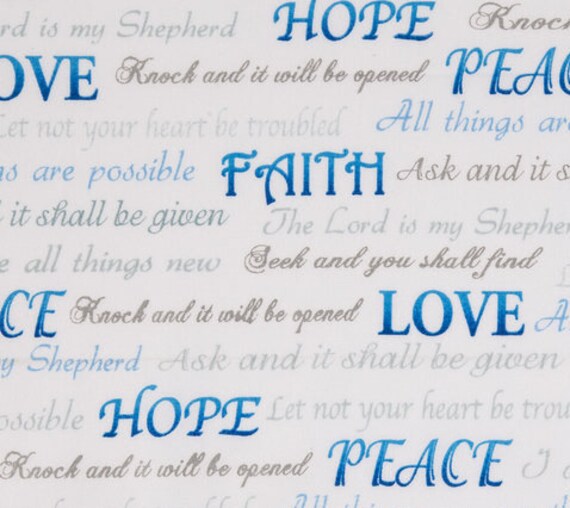 rd is my Shepherd HOPE Knock
OVE Knock and it will be opened PEAC
Let not your heart be troubled All things are
ns are possible FAITH Ask and it s
d it shall be given The Lord is my Shepher
e all things new Seek and you shall find
CE Knock and it will be opened LOVE A
my Shepherd Ask and it shall be given
ossible HOPE Let not your heart be trou
Knock and it will be opened PEACE I
All thi